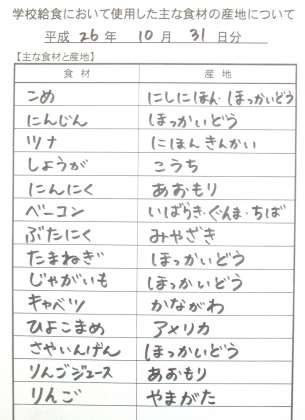 学校給食において使用した主な食材の産地について
平成 26 年 10 月 31 日分
【主な食材と産地】
食材 産地
こめ にしにほん・ほっかいどう
にんじん ほっかいどう
ツナ にほんきんかい
しょうが こうち
にんにく あおもり
ベーコン いばらき・ぐんま・ちば
ぶたにく みやざき
たまねぎ ほっかいどう
じゃがいも ほっかいどう
キャベツ かながわ
ひよこまめ アメリカ
さやいんげん ほっかいどう
りんごジュース あおもり
りんご やまがた